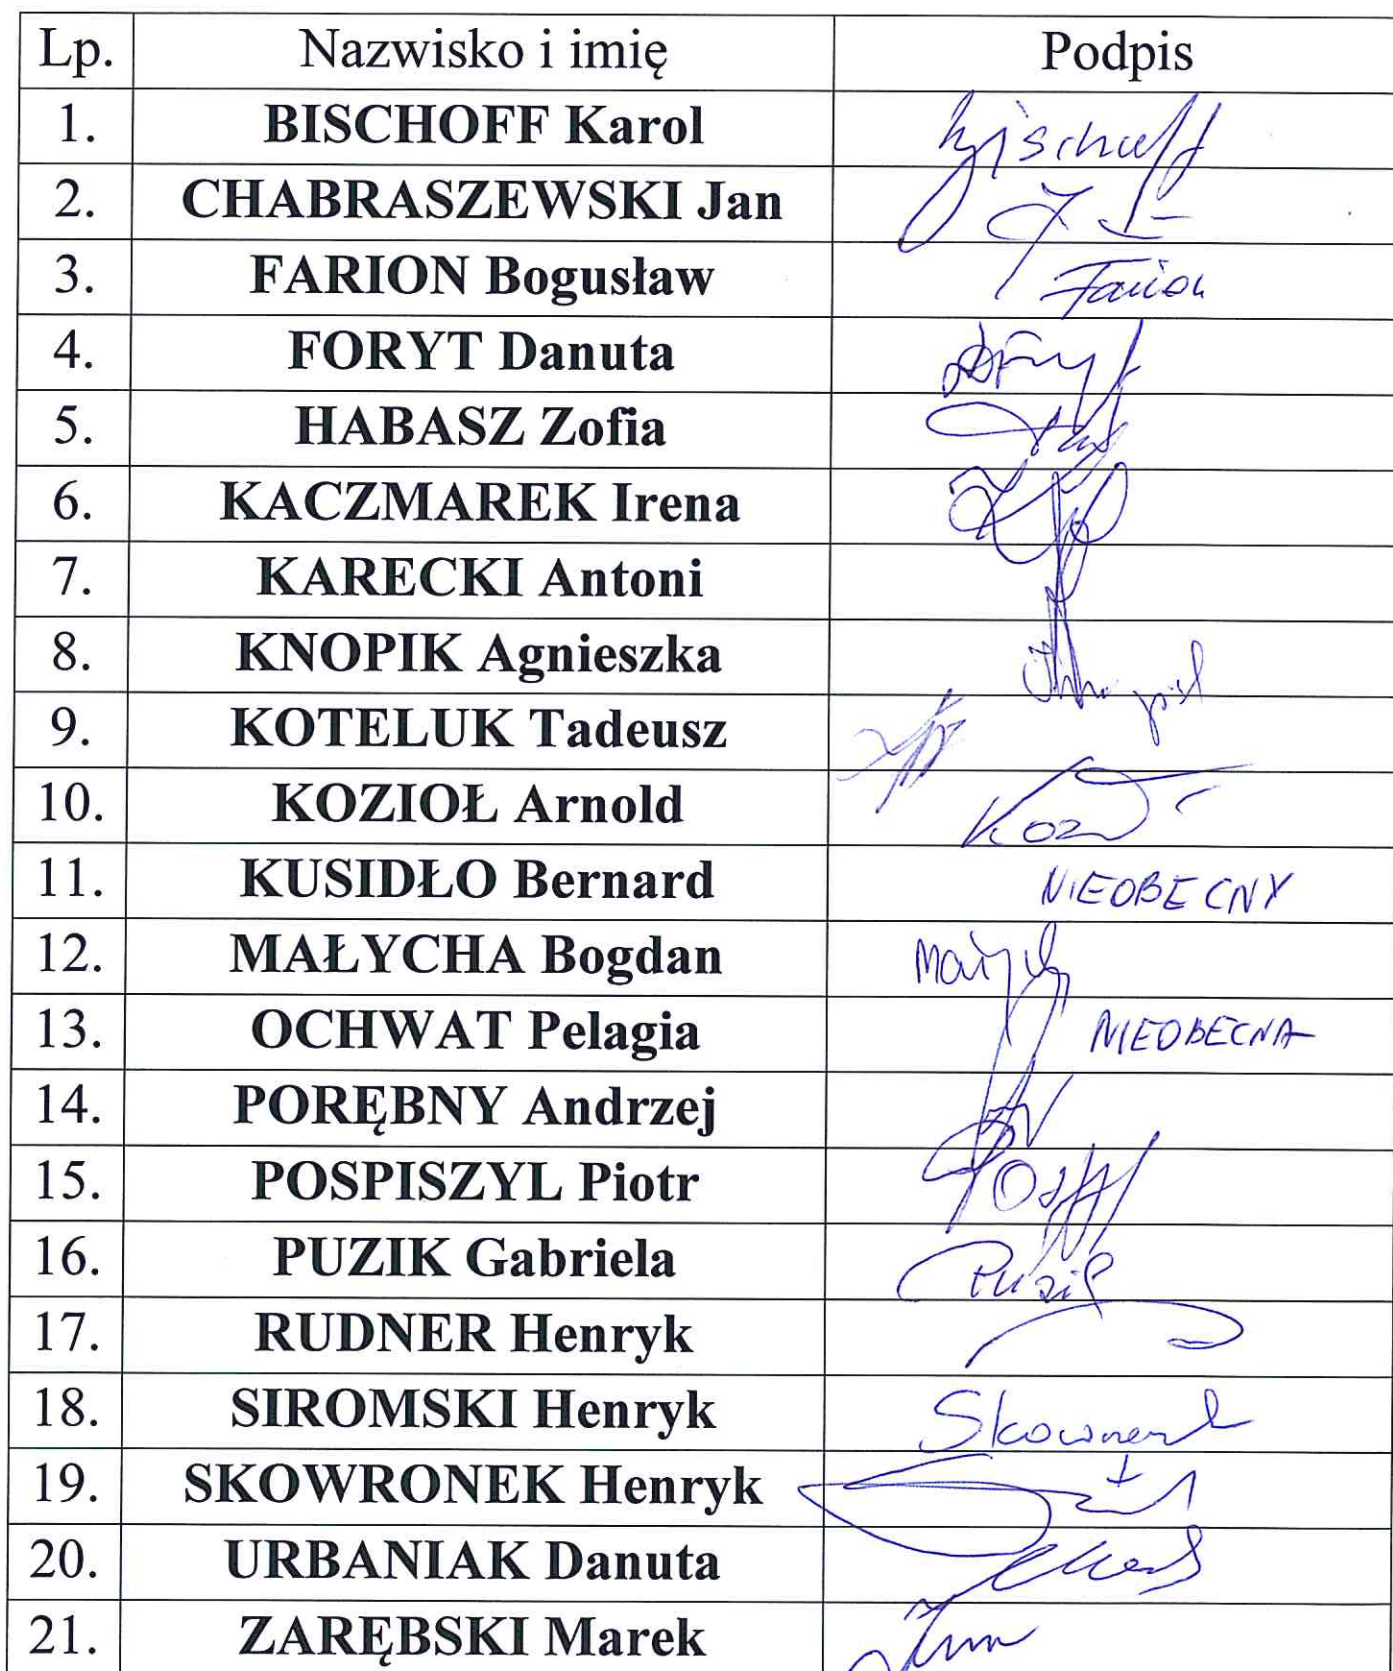 Lp. Nazwisko i imię Podpis
1. BISCHOFF Karol Bischoff
2. CHABRASZEWSKI Jan
3. FARION Bogusław Farion
4. FORYT Danuta
5. HABASZ Zofia
6. KACZMAREK Irena
7. KARECKI Antoni
8. KNOPIK Agnieszka
9. KOTELUK Tadeusz
10. KOZIOŁ Arnold
11. KUSIDŁO Bernard NIEOBECNY
12. MAŁYCHA Bogdan
13. OCHWAT Pelagia NIEOBECNA
14. PORĘBNY Andrzej
15. POSPISZYL Piotr
16. PUZIK Gabriela Puzik
17. RUDNER Henryk
18. SIROMSKI Henryk Skowronek
19. SKOWRONEK Henryk
20. URBANIAK Danuta
21. ZARĘBSKI Marek